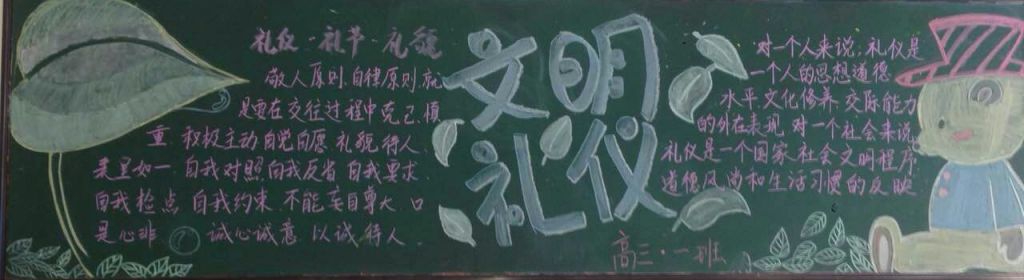 礼仪·礼节·礼貌
敬人原则,自律原则,就
是要在交往过程中克己、慎
重、积极主动 自觉自愿 礼貌待人、
表里如一 自我对照 自我反省 自我要求、
自我检点 自我约束 不能妄自尊大 口
是心非 诚心诚意 以诚待人.
文明
礼仪
对一个人来说,礼仪是
一个人的思想道德
水平 文化修养 交际能力
的外在表现 对一个社会来说
礼仪是一个国家社会文明程序
道德风尚和生活习惯的反映
高三·一班